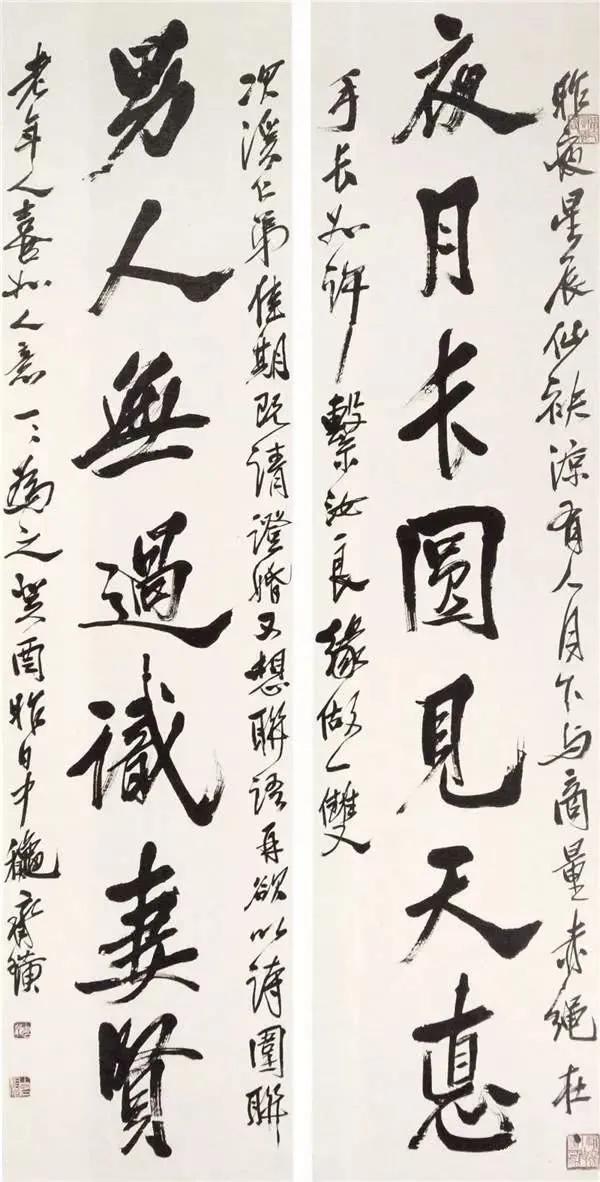 昨夜星辰仙袂涼有人月下与商量赤繩在
夜月長圓見天悳
手長如許繫汝良緣做一雙
次溪仁弟佳期既請證婚又想聯語再欲以詩圍聯
男人無過識妻賢
老年人喜如人意一一為之癸酉昨日中龝齊璜